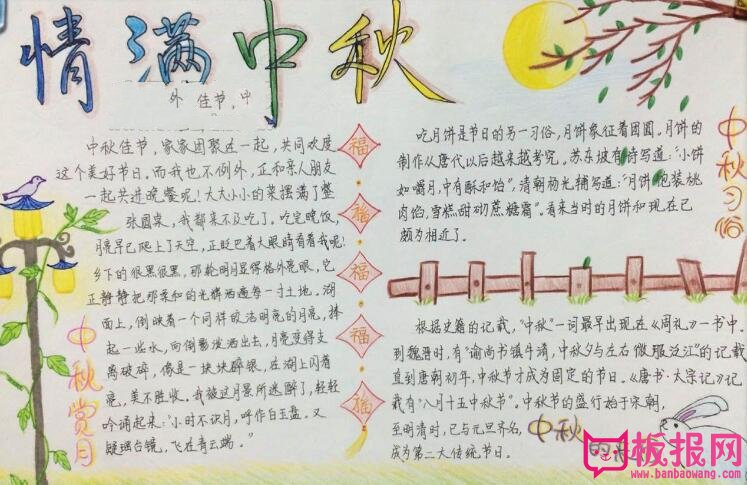 情满中秋
外 佳节,中
中秋佳节,家家团聚在一起,共同欢度
这个美好节日。而我也不例外,正和亲人朋友
一起共进晚餐呢!大大小小的菜摆满了整
张圆桌,我都来不及吃了。吃完晚饭
月亮早已爬上了天空,正眨巴着大眼睛看着我呢!
乡下的很黑很黑,那轮明月显得格外亮眼,它
正静静把那柔和的光辉洒遍每一寸土地。湖
面上,倒映着一个同样皎洁明亮的月亮,捧
起一些水,向倒影泼洒出去,月亮变得支
离破碎,像是一块块碎银,在湖上闪着
亮,美不胜收。我被这月景所迷醉了,轻轻
吟诵起来:“小时不识月,呼作白玉盘,又
疑瑶台镜,飞在青云端。”
中秋赏月
福
福
福
福
福
吃月饼是节日的另一习俗,月饼象征着团圆。月饼的
制作从唐代以后越来越考究。苏东坡有诗写道:“小饼
如嚼月,中有酥和饴”,清朝杨光辅写道:“月饼饱装桃
肉馅,雪糕甜砌蔗糖霜”。看来当时的月饼和现在已
颇为相近了。
中秋习俗
根据史籍的记载,“中秋”一词最早出现在《周礼》一书中。
到魏晋时,有“谕尚书镇牛渚,中秋夕与左右微服泛江”的记载
直到唐朝初年,中秋节才成为固定的节日。《唐书·太宗记》记
载有“八月十五中秋节”。中秋节的盛行始于宋朝,
至明清时,已与元旦齐名,
成为第二大传统节日。
中秋
的
板报网
www.banbaowang.com